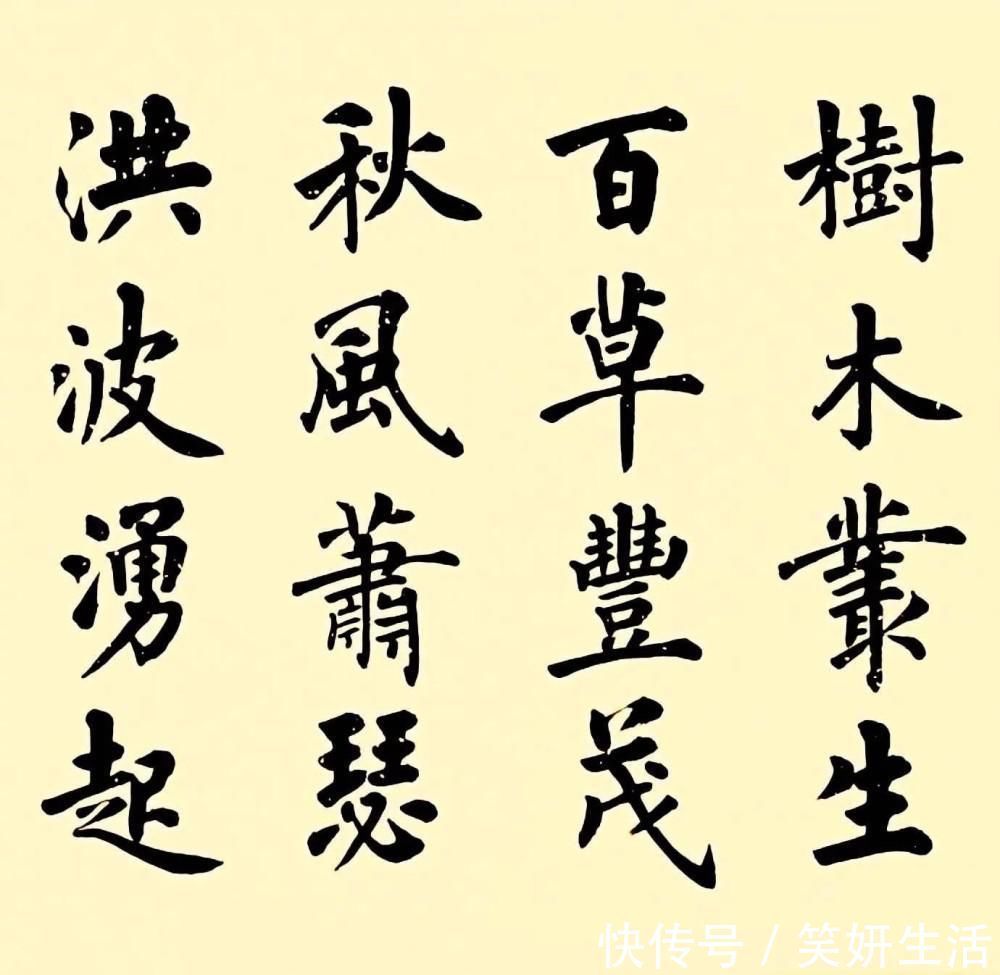 樹木叢生
百草豐茂
秋風蕭瑟
洪波湧起
快传号／笑妍生活